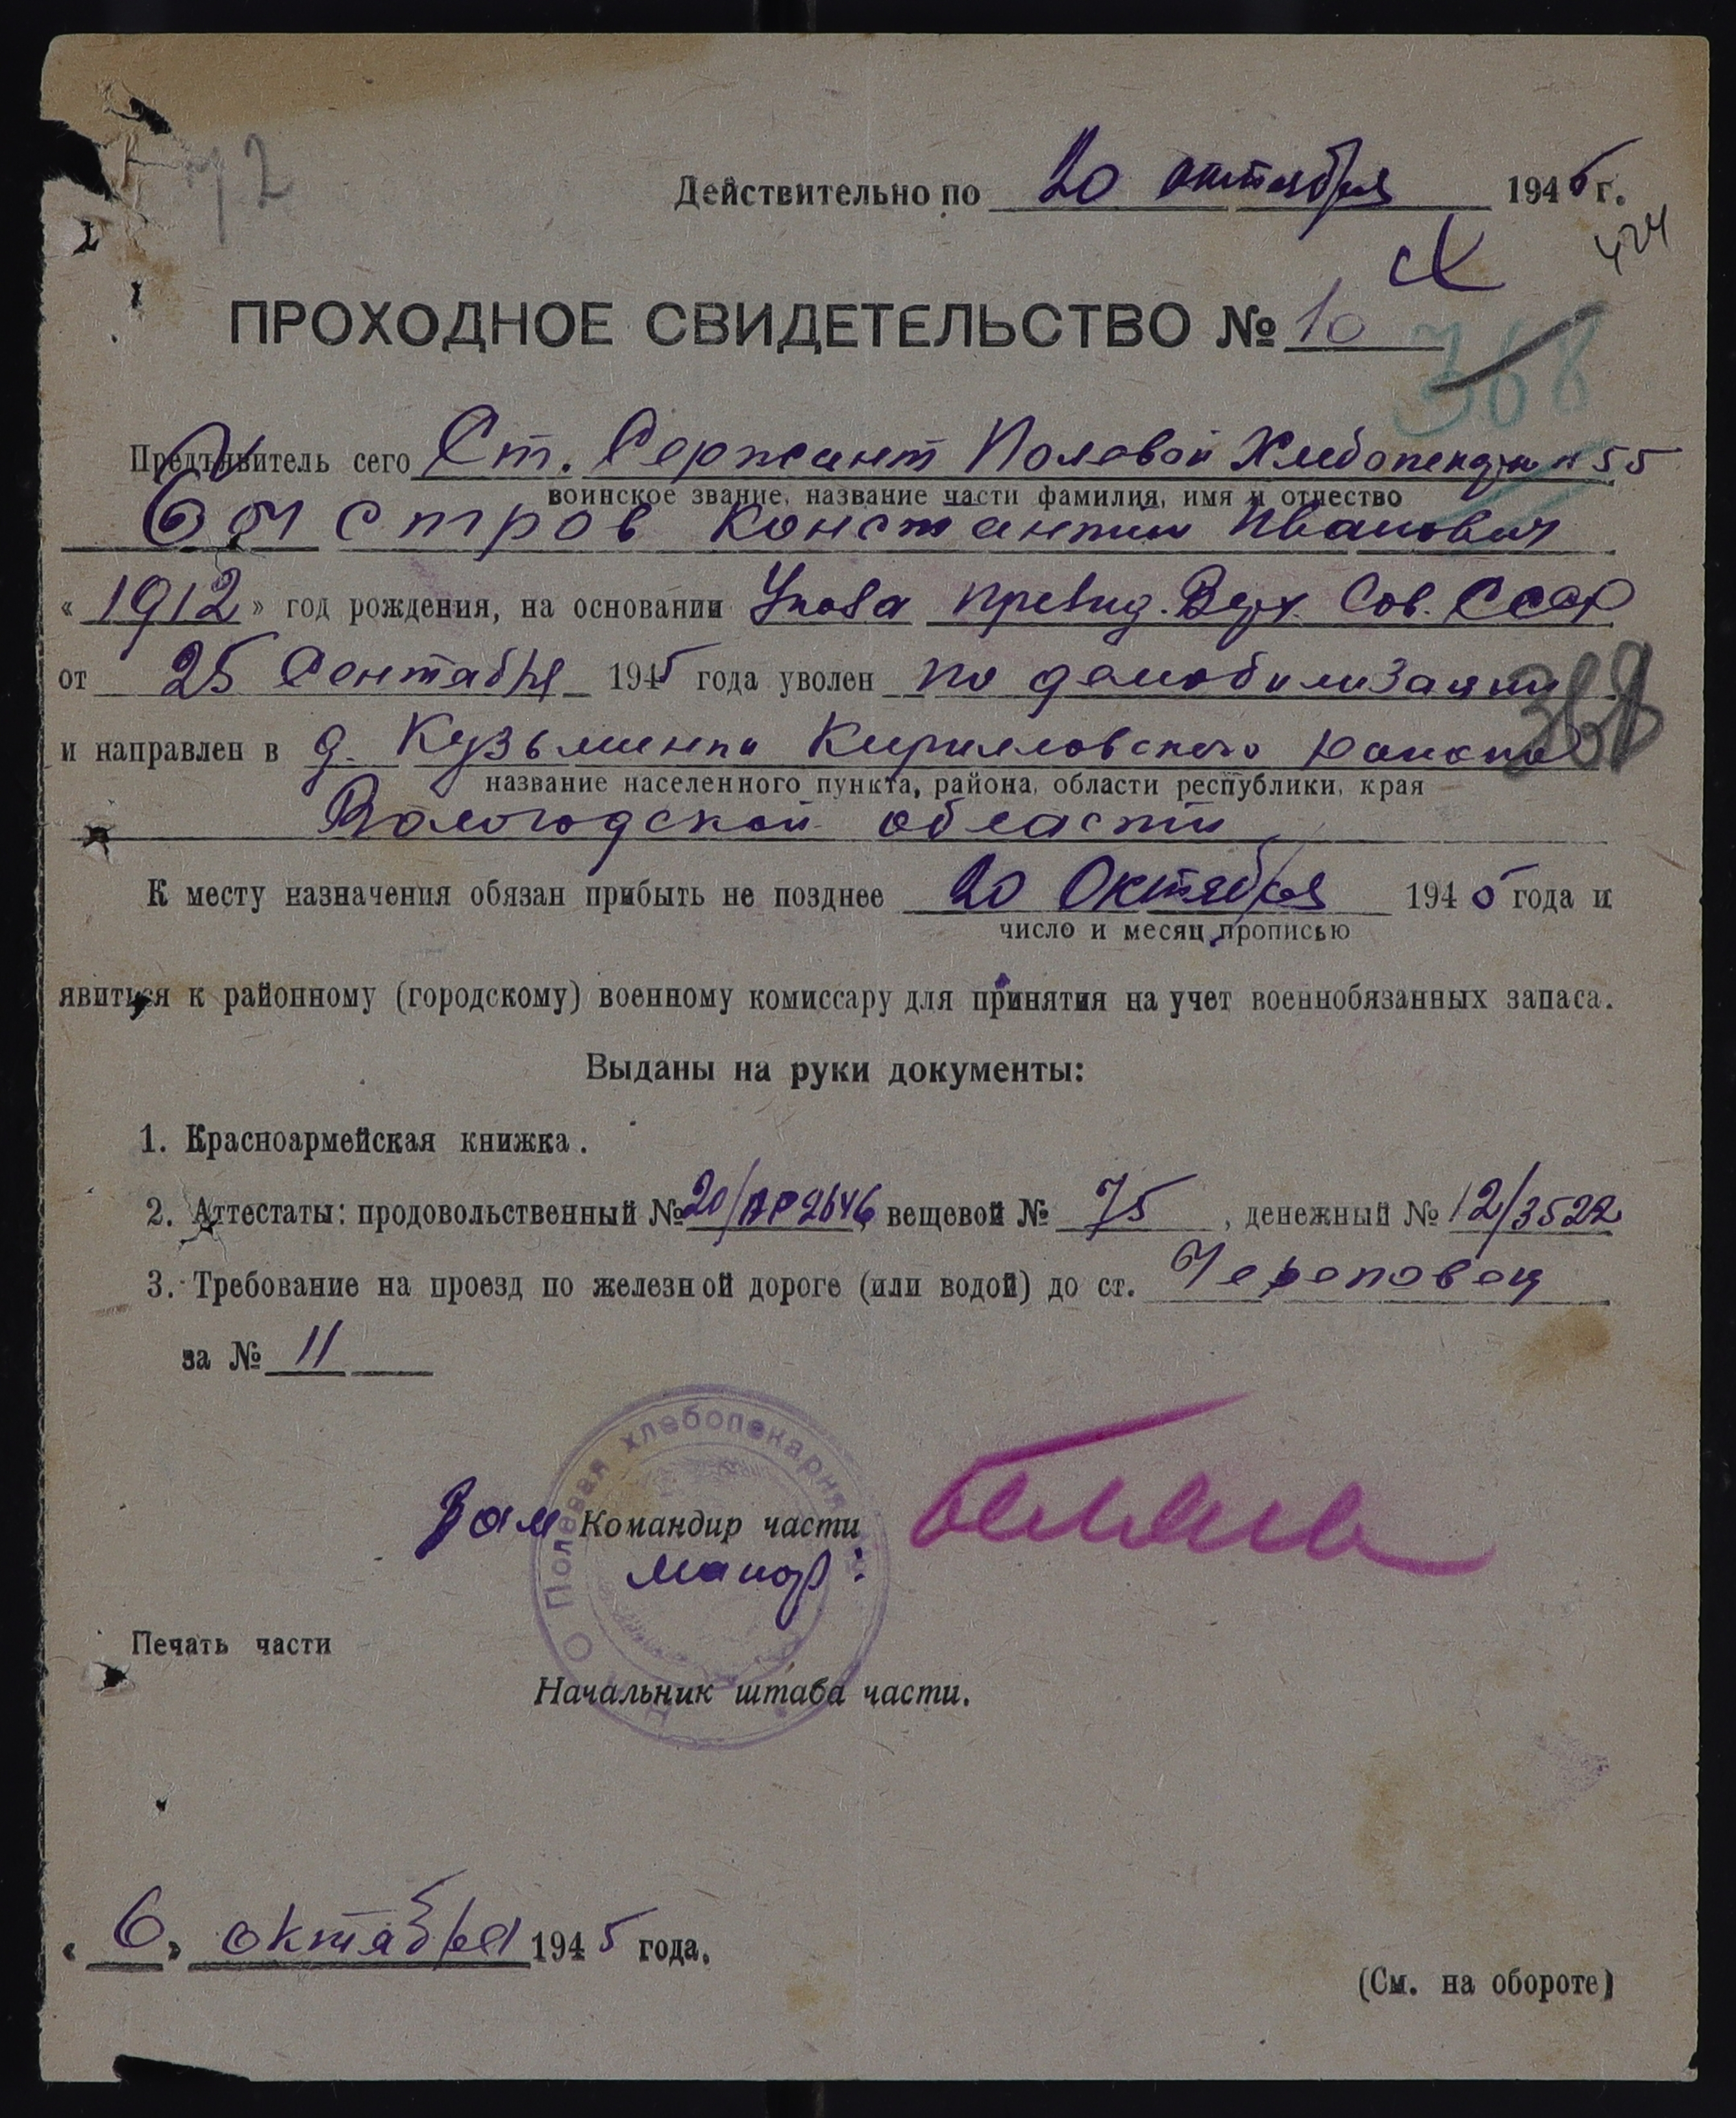 42
Действительно по 20 октября 1945 г.
424
ПРОХОДНОЕ СВИДЕТЕЛЬСТВО № 10
368
Предъявитель сего Ст. Сержант Полевой Хлебопекарни 55
воинское звание, название части фамилия, имя и отчество
Быстров Константин Иванович
« 1912 » год рождения, на основании Указа Презид. Верх. Сов. СССР
от 25 Сентября 1945 года уволен по демобилизации
368
и направлен в д. Кузьминки Кирилловского района
название населенного пункта, района, области республики, края
Вологодской области
К месту назначения обязан прибыть не позднее 20 Октября 1945 года и
число и месяц прописью
явиться к районному (городскому) военному комиссару для принятия на учет военнобязанных запаса.
Выданы на руки документы:
1. Красноармейская книжка.
2. Аттестаты: продовольственный № 20/АР 2646 вещевой № 75, денежный № 12/3522
3. Требование на проезд по железной дороге (или водой) до ст. Череповец
за № 11
Полевая хлебопекарня
Зам Командир части
майор:
Печать части
Начальник штаба части.
« 6 » октября 1945 года.
(См. на обороте)